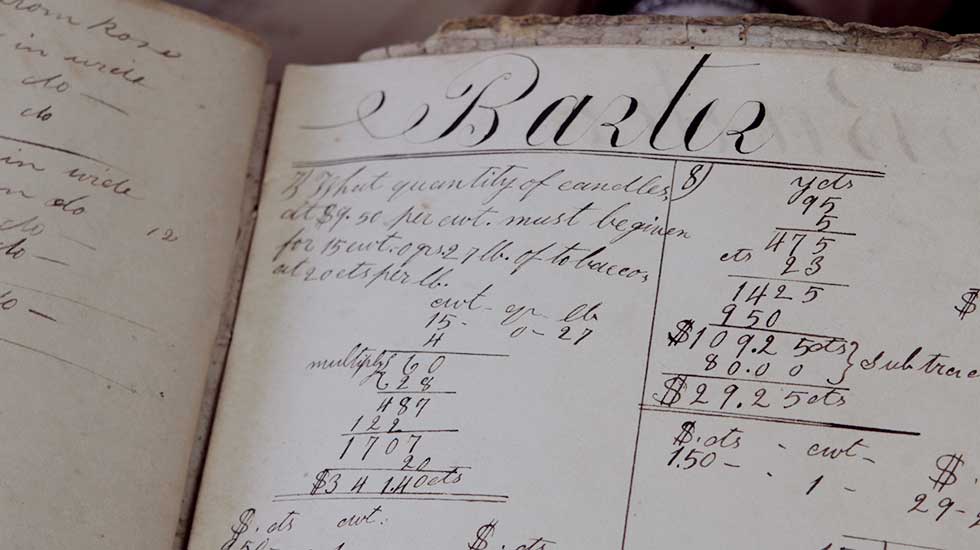 from Rose
in wide
do —
do
in wide
do
do — 12
do —
do —
Barter
7) What quantity of candles,
at $9.50 per cwt. must be given
for 15 cwt. 0 qrs. 27 lb. of tobacco,
at 20 cts per lb.
cwt - qr lb
15 - 0 - 27
4
multiply 60
28
487
122
1707
20
$341.40 cts
$. cts cwt. $. cts
8)
yds
95
5
475
cts 23
1425
950
$109.25 cts } Subtract
80.00
$29.25 cts
$. cts - cwt - $.
1.50 - 1 - 29-
$